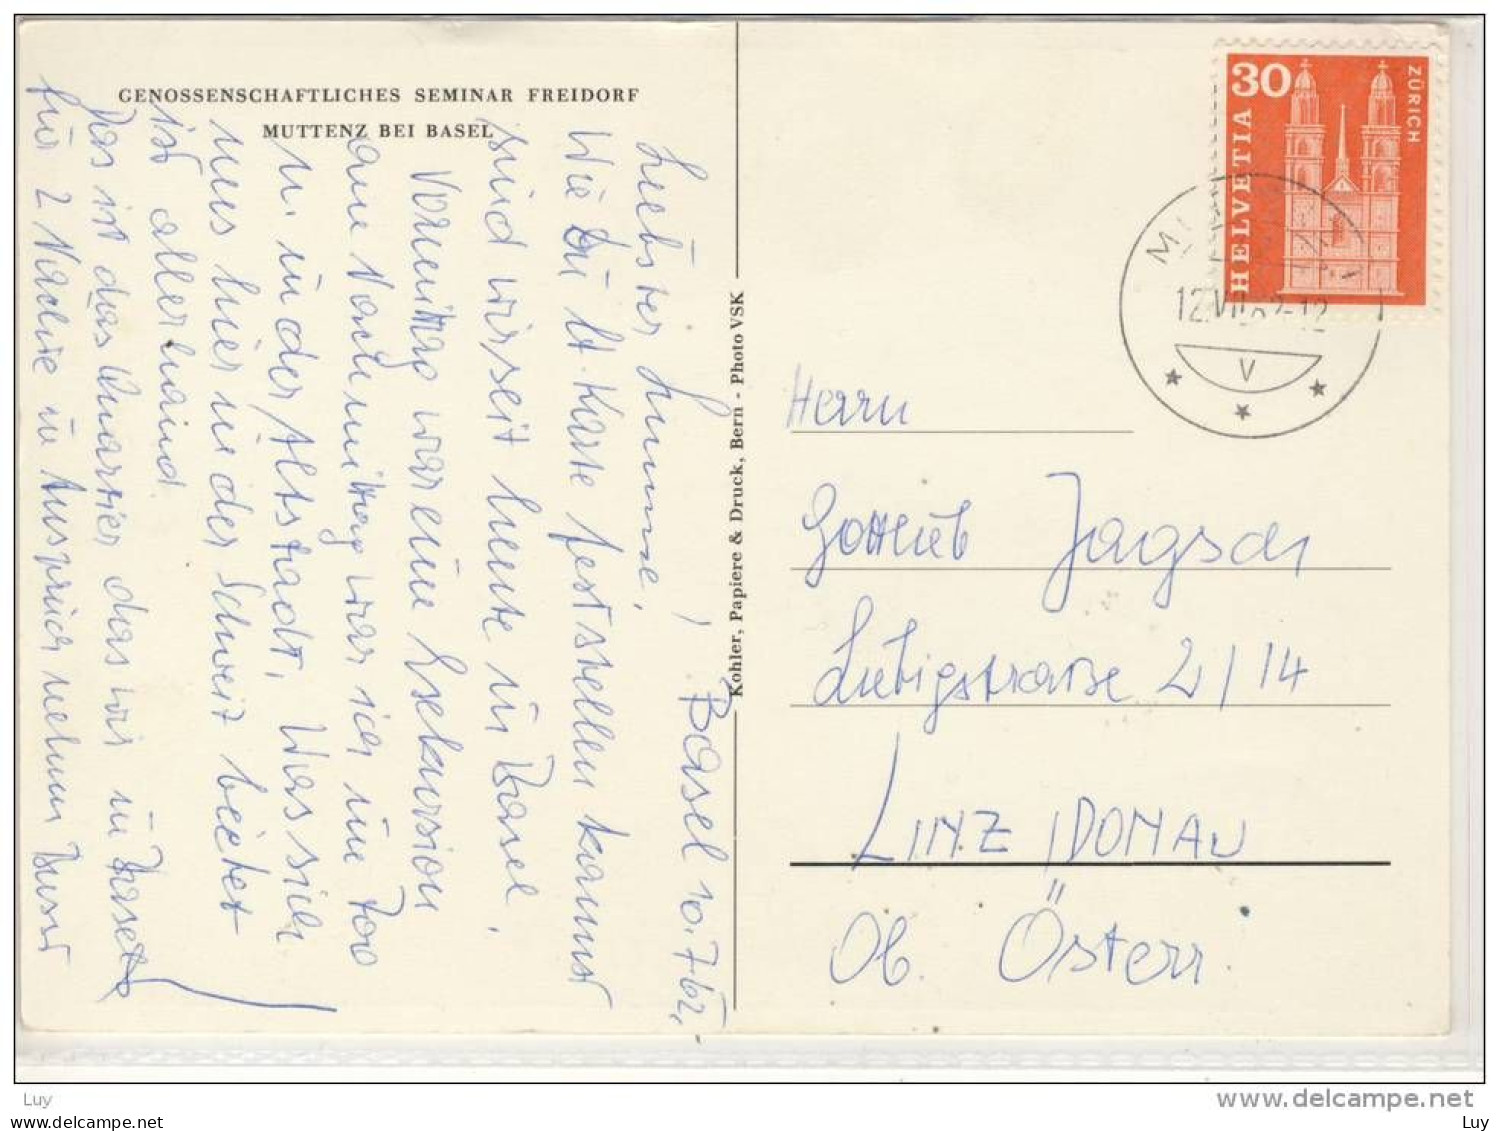 GENOSSENSCHAFTLICHES SEMINAR FREIDORF
MUTTENZ BEI BASEL
Basel 10.7.62,
Liebster
Wie Du lt. Karte feststellen kannst
sind wir seit heute in Basel.
Vormittag war eine Exkursion
am Nachmittag war ich im Zoo
u. in der Altstadt. Was sich
uns hier in der Schweiz bietet
ist allerhand
Das ist das Quartier das wir in Basel
für 2 Nächte in Anspruch nehmen
Kohler, Papiere & Druck, Bern - Photo VSK
30
HELVETIA
ZÜRICH
12.VII.62-12
V
Herrn
Gottlieb Jagsch
Liebigstraße 2/14
LINZ /DONAU
Ob. Österr.
Luy
www.delcampe.net
Luy
Luy